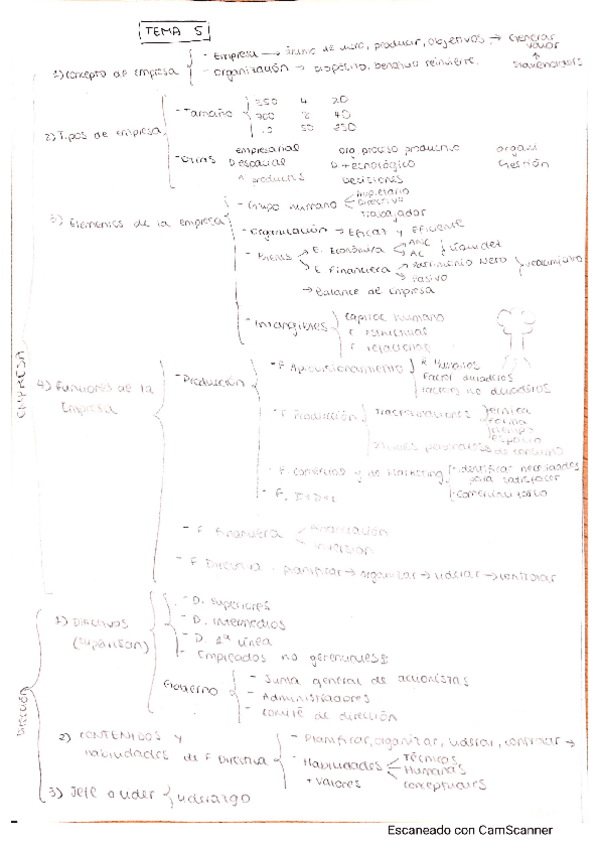 TEMA 5
1) concepto de empresa
- Empresa → ánimo de lucro, producir, objetivos → Generar valor
- organización → propósito, beneficio reinvierte. Stakeholders
2) Tipos de empresa
- Tamaño
250 4 20
40
50
- Otros
empresarial org. proceso productivo
D espacial D tecnológico Gestión
productos Decisiones
3) Elementos de la empresa
- Grupo humano
Propietario
Directivo
Trabajador
- Organización → Eficaz y Eficiente
- Bienes
E. Económica
ANC
AC
liquidez
E Financiera
Patrimonio Neto
Pasivo
→ Balance de empresa
- Intangibles
capital humano
c estructural
c relacional
EMPRESA
4) Funciones de la Empresa
- Producción
- F Aprovisionamiento
R Humanos
Factor duraderos
factores no duraderos
- F Producción
Transformaciones
Técnica
Forma
Tiempo
Espacio
- F. comercial y de Marketing
- identificar necesidades para satisfacer
- F. I+D+i
- F Financiera
Financiación
inversión
- F Directiva
planificar → organizar → liderar → controlar
Dirección
1) Directivos (supervisan)
- D. superiores
- D. intermedios
- D. 1ª línea
- Empleados no gerenciales
Gobierno
- Junta general de accionistas
- Administradores
- comité de dirección
2) CONTENIDOS y habilidades de F Directiva
- Planificar, organizar, liderar, controlar →
- Habilidades
Técnicas
Humanas
conceptuales
+ valores
3) Jefe o líder
liderazgo
Escaneado con CamScanner